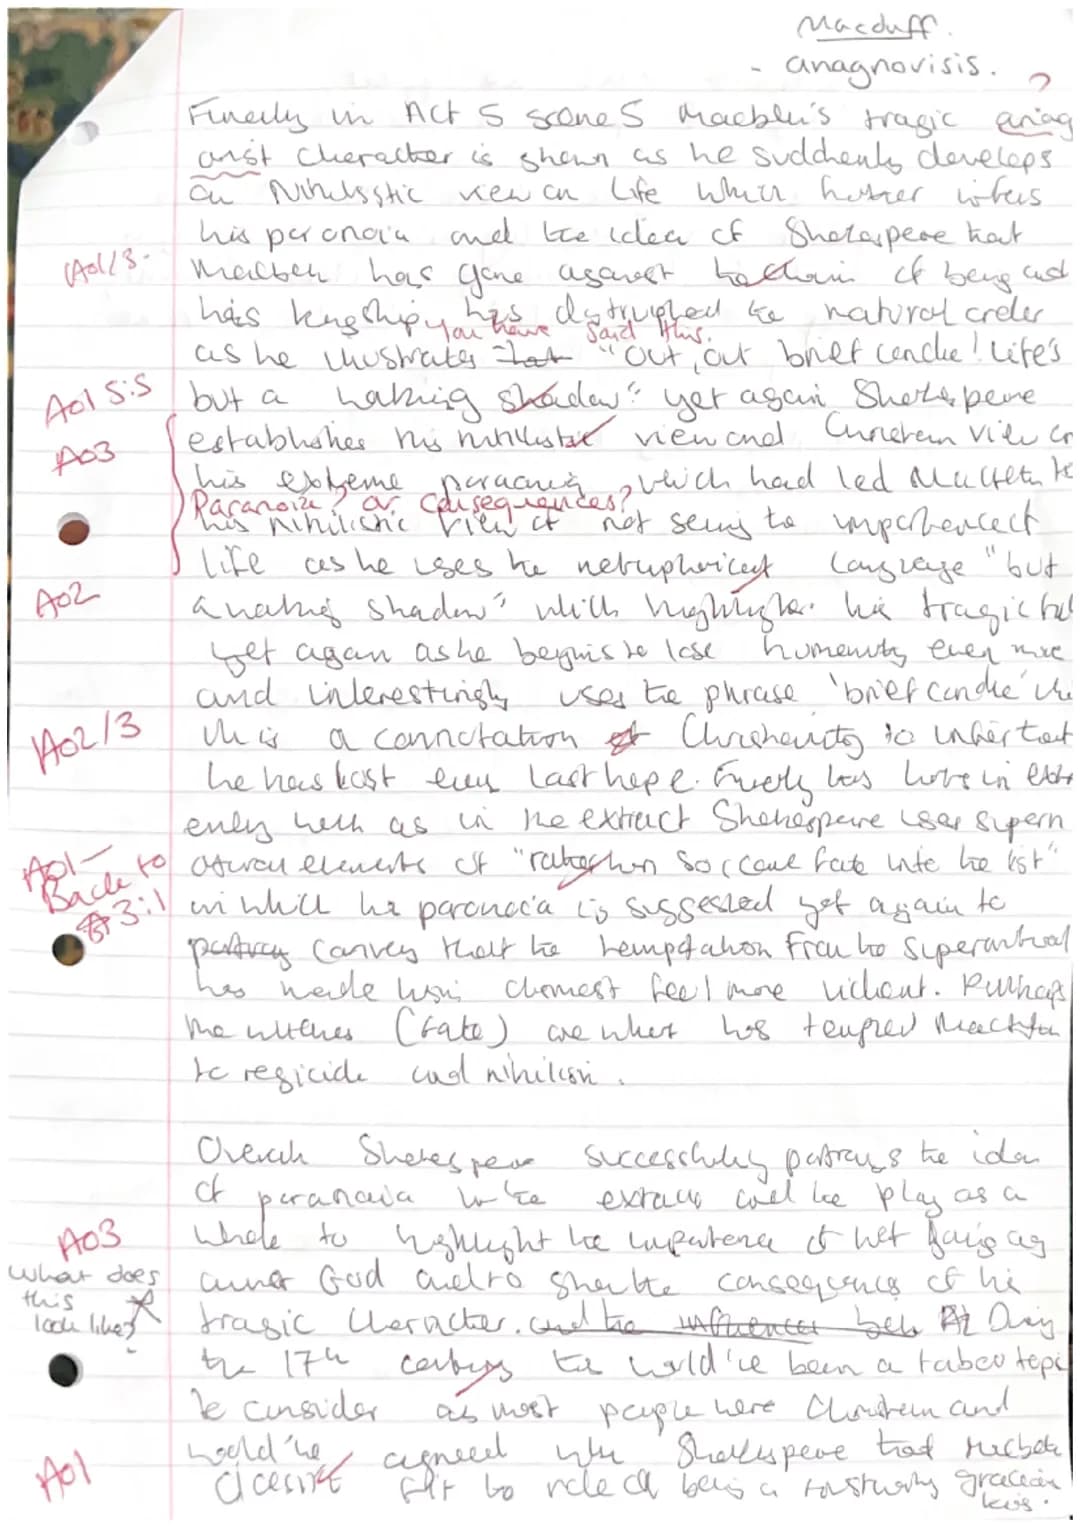 Macduff.
- anagnorisis.
?
Finally in Act 5 scene 5 Macbeth's tragic anag
onist character is shown as he suddenly develops
an Nihilistic view on life which further infers
his paranoia and the idea of Shakespeare that
AO1/3. Macbeth has gone against the chain of being and
his kingship has distrupted the natural order
you have said this.
as he illustrates that "Out, out brief candle! Life's
AO1 5:5 but a walking shadow" yet again Shakespeare
AO3 establishes his nihilistic view and Christian view on
his extreme paranoia, which had led Macbeth to
Paranoia? or consequences?
his nihilistic view of not seeing the importance of
life as he uses the metaphorical language "but
AO2 a walking shadow" which highlights his tragic
yet again as he begins to lose humanity even more
and interestingly uses the phrase 'brief candle'
AO2/3 a connotation of Christianity to infer that
he has lost every last hope.
as in the extract Shakespeare uses supern
AO1 - Back to 3:1 atural elements of "rather than so come fate into the list"
in which his paranoia is suggested yet again to
portray convey that the temptation from the supernatural
has made him almost feel more violent. Perhaps
the witches (fate) are what has tempted Macbeth
to regicide and nihilism.
Overall Shakespeare successfully portrays the idea
of paranoia in the extract and the play as a
AO3 whole to highlight the importance of not going ag
what does this look like? ainst God and to show the consequences of his
tragic character. and the influences During
the 17th century this would've been a taboo topic
to consider as most people were Christian and
AO1 would've agreed with Shakespeare that Macbeth
doesn't fit to role of being a trustworthy gracious
king.